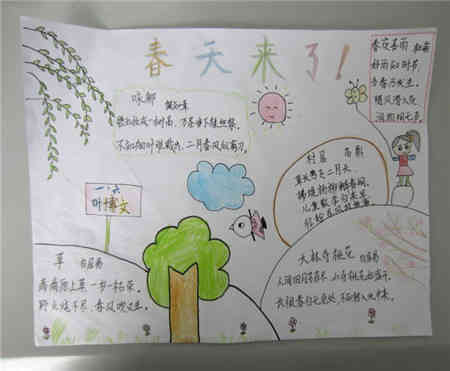 春天来了!
春夜喜雨 杜甫
好雨知时节
当春乃发生。
随风潜入夜
润物细无声。
咏柳 贺知章
碧玉妆成一树高,万条垂下绿丝绦。
不知细叶谁裁出,二月春风似剪刀。
村居 高鼎
草长莺飞二月天,
拂堤杨柳醉春烟。
儿童散学归来早
一·六
叶博文
草 白居易
离离原上草 一岁一枯荣。
野火烧不尽,春风吹又生。
大林寺桃花 白居易
人间四月芳菲尽,山寺桃花始盛开。
长恨春归无觅处,不知转入此中来。